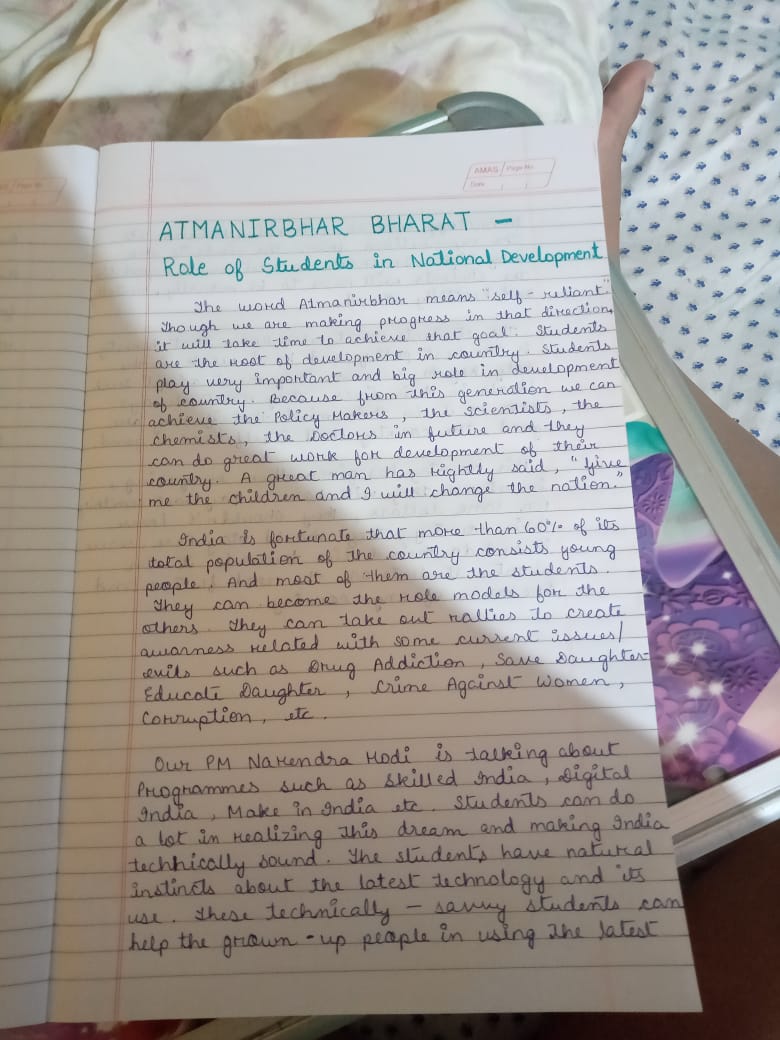 AMAS Page No.
Date
ATMANIRBHAR BHARAT -
Role of Students in National Development
The word Atmanirbhar means "self-reliant".
Though we are making progress in that direction,
it will take time to achieve that goal. Students
are the root of development in country. Students
play very important and big role in development
of country. Because from this generation we can
achieve the Policy Makers, the scientists, the
chemists, the Doctors in future and they
can do great work for development of their
country. A great man has rightly said, "Give
me the children and I will change the nation."
India is fortunate that more than 60% of its
total population of the country consists young
people. And most of them are the students.
They can become the role models for the
others. They can take out rallies to create
awarness related with some current issues/
evils such as Drug Addiction, Save Daughter-
Educate Daughter, Crime Against Women,
Corruption, etc.
Our PM Narendra Modi is talking about
Programmes such as Skilled India, Digital
India, Make in India etc. Students can do
a lot in realizing this dream and making India
techhically sound. The students have natural
instincts about the latest technology and its
use. These technically - savvy students can
help the grown-up people in using the latest